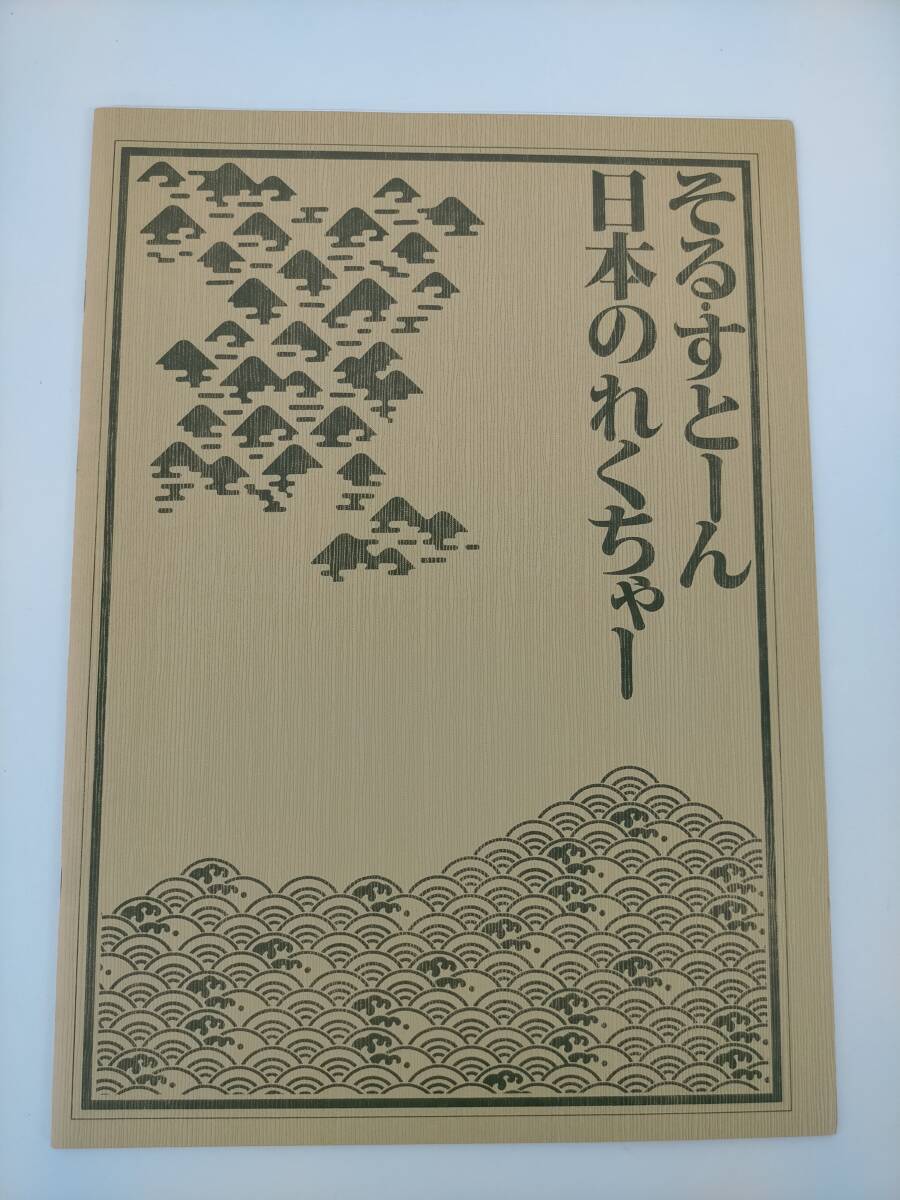 そる・すとーん
日本のれくちゃー